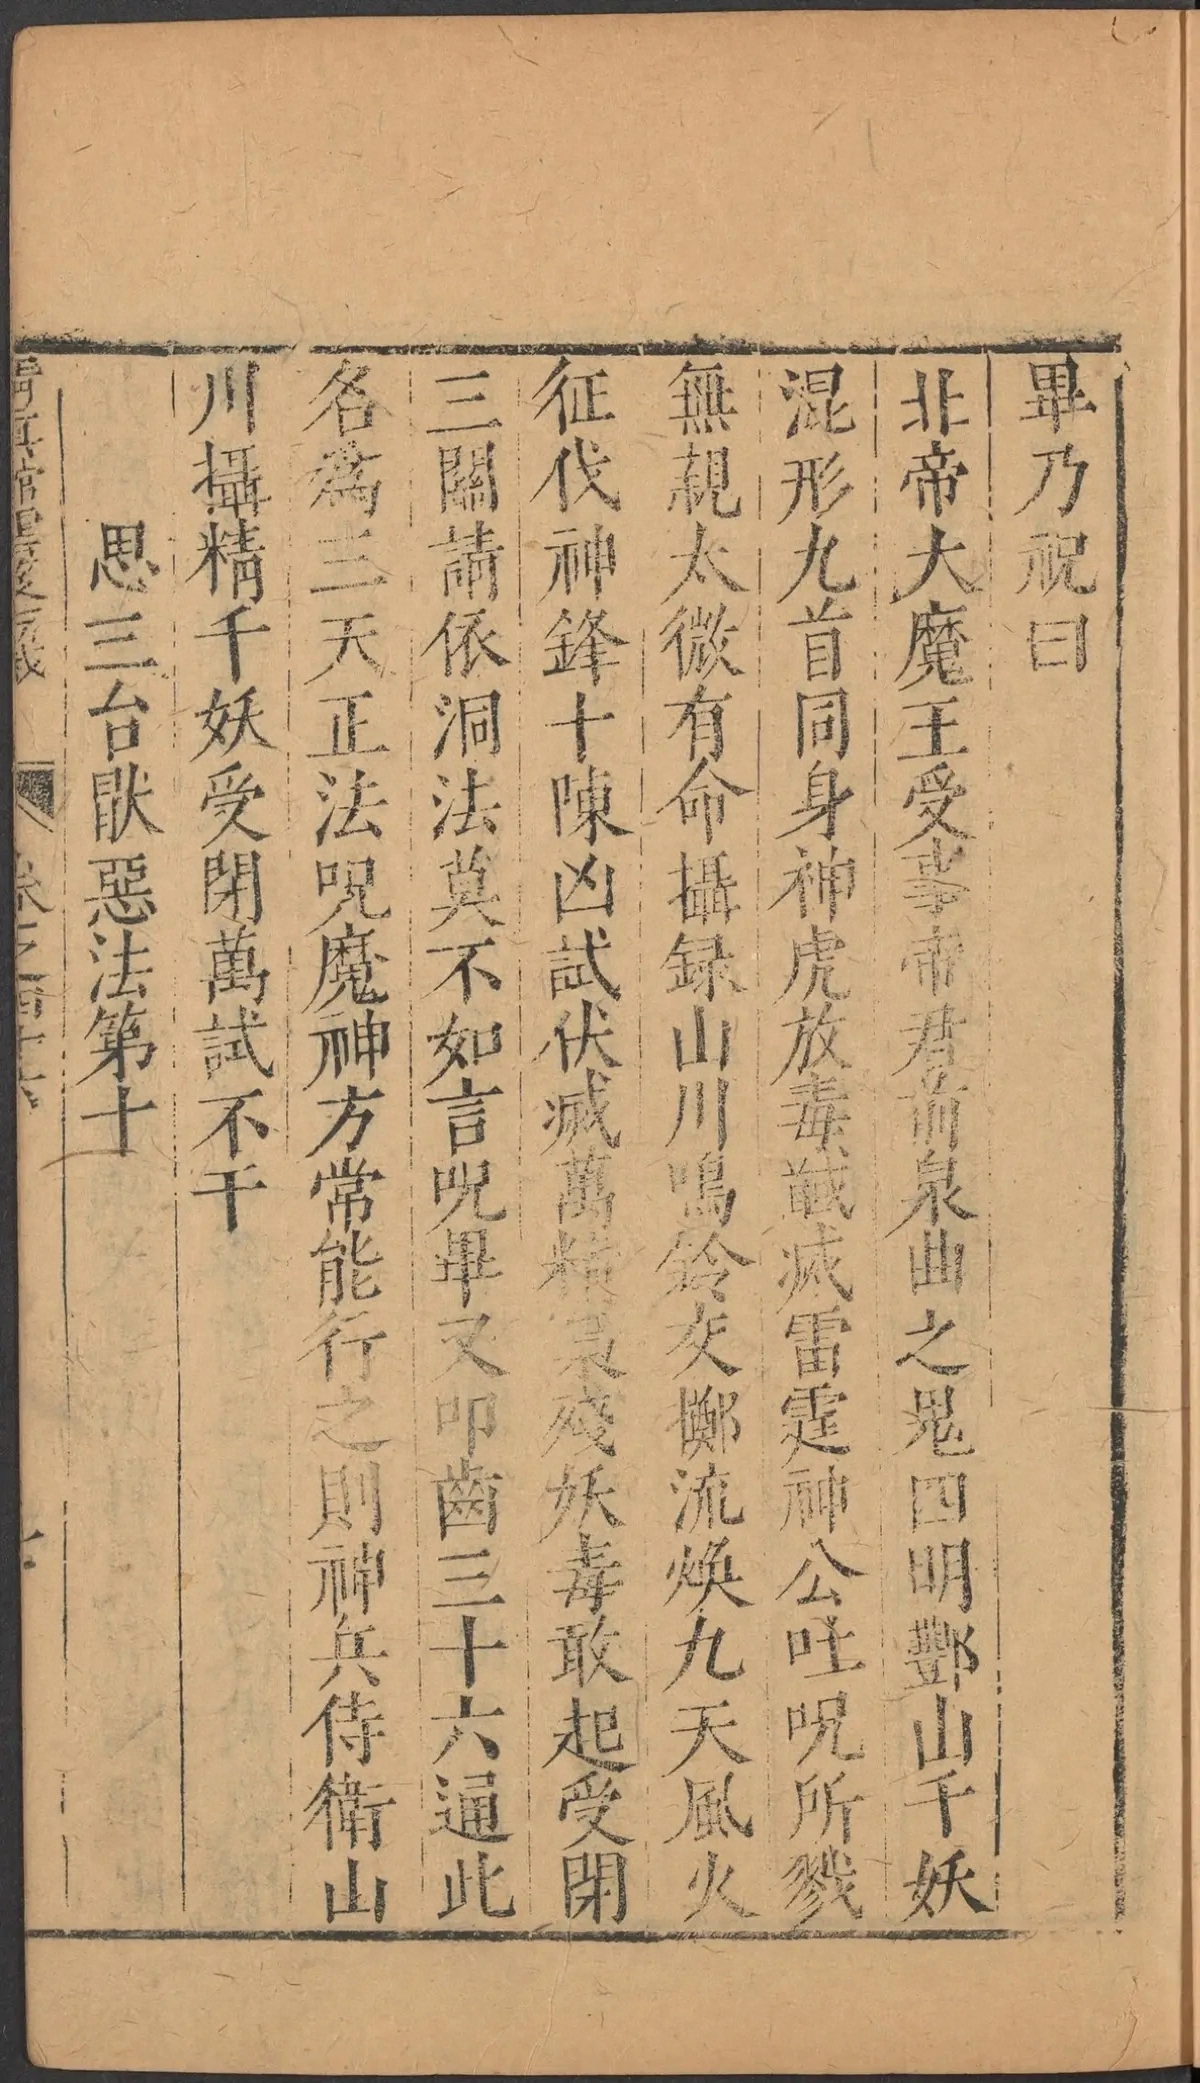 畢乃祝曰
北帝大魔王受事帝君前泉曲之鬼四明酆山千妖
混形九首同身神虎放毒馘滅雷霆神公吐呪所戮
無親太微有命攝録山川鳴鈴交擲流煥九天風火
征伐神鋒十陳凶試伏滅萬精梟殘妖毒敢起受閉
三關請依洞法莫不如言呪畢又叩齒三十六通此
各為三天正法呪魔神方常能行之則神兵侍衛山
川攝精千妖受閉萬試不干
思三台猒惡法第十